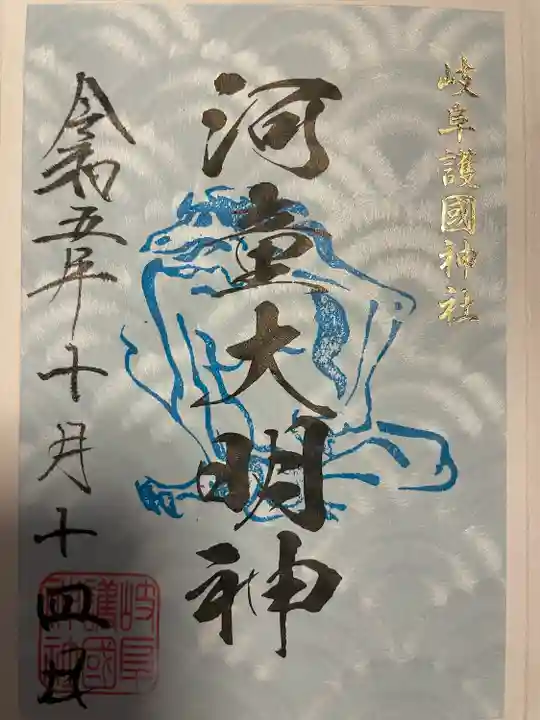 岐阜護國神社
河童大明神
令和五年十月十四日
岐阜
護國
神社